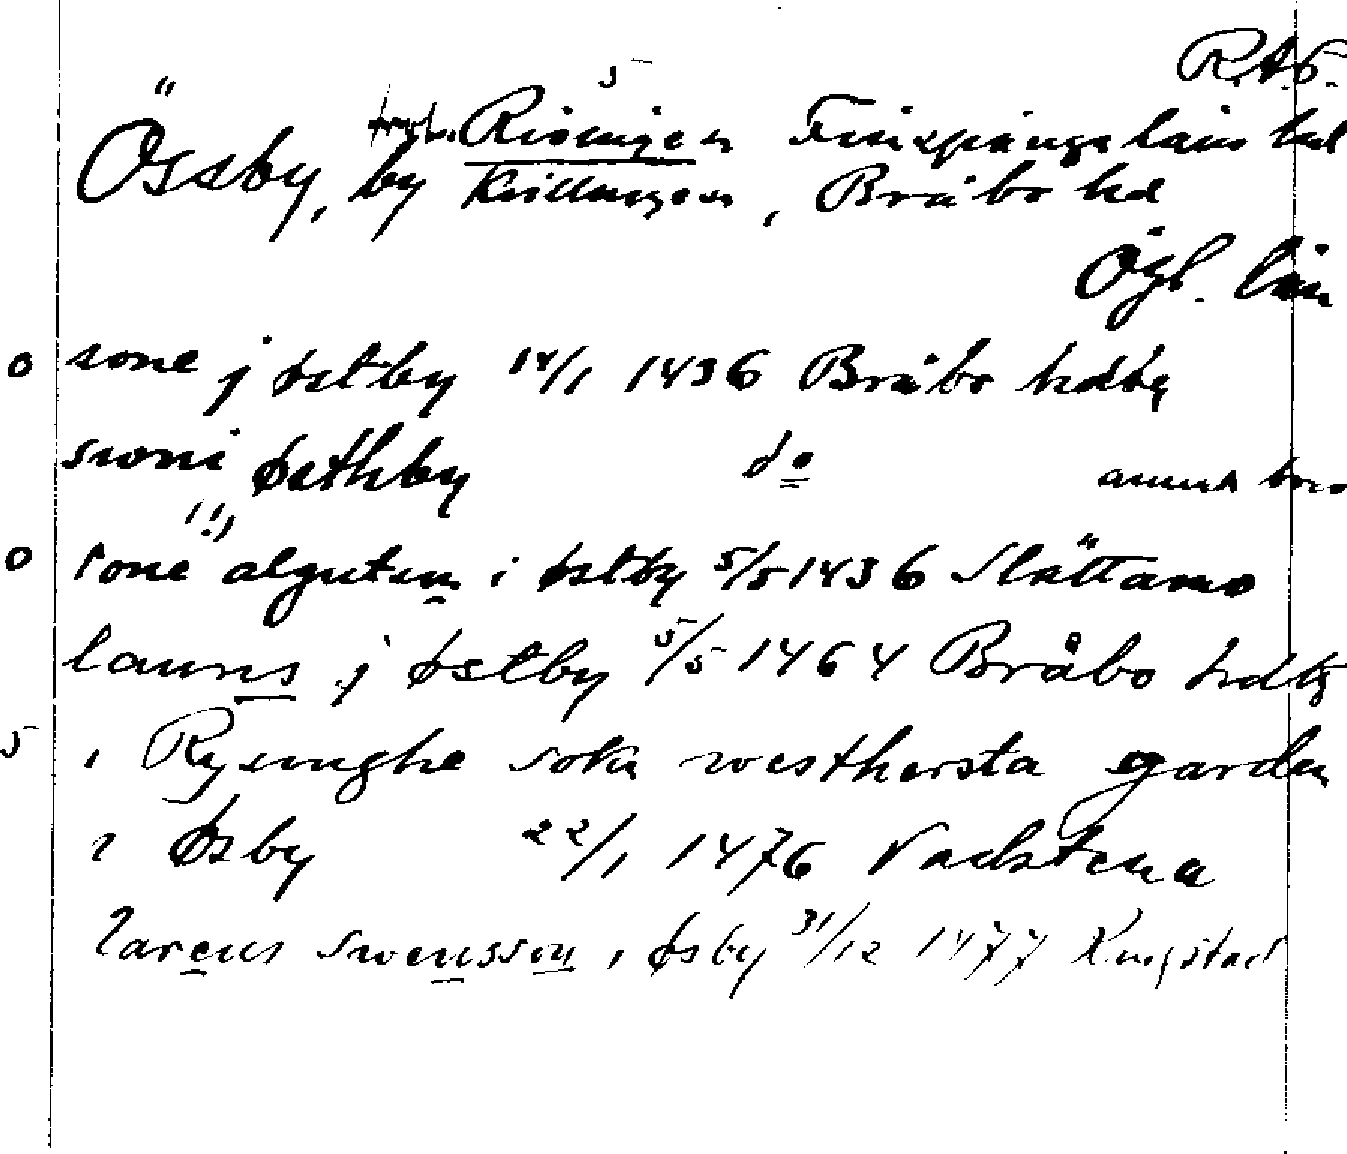 R.A.P.
5
Össby, by Risinge sn Finspånga läns hd
Kvillinge sn, Bråbo hd
Ögl. län
o sone j østby 14/1 1436 Bråbo hdbg
swoni østhby do annat brev
(!)
o sone algutsm i østby 5/5 1436 Slättamo
lauris j østby 5/5 1464 Bråbo hdbg
5 i Rysinghe sokn westhersta garden
i øsby 22/1 1476 Vadstena
larens swensson i øsby 31/12 1477 Ringstad